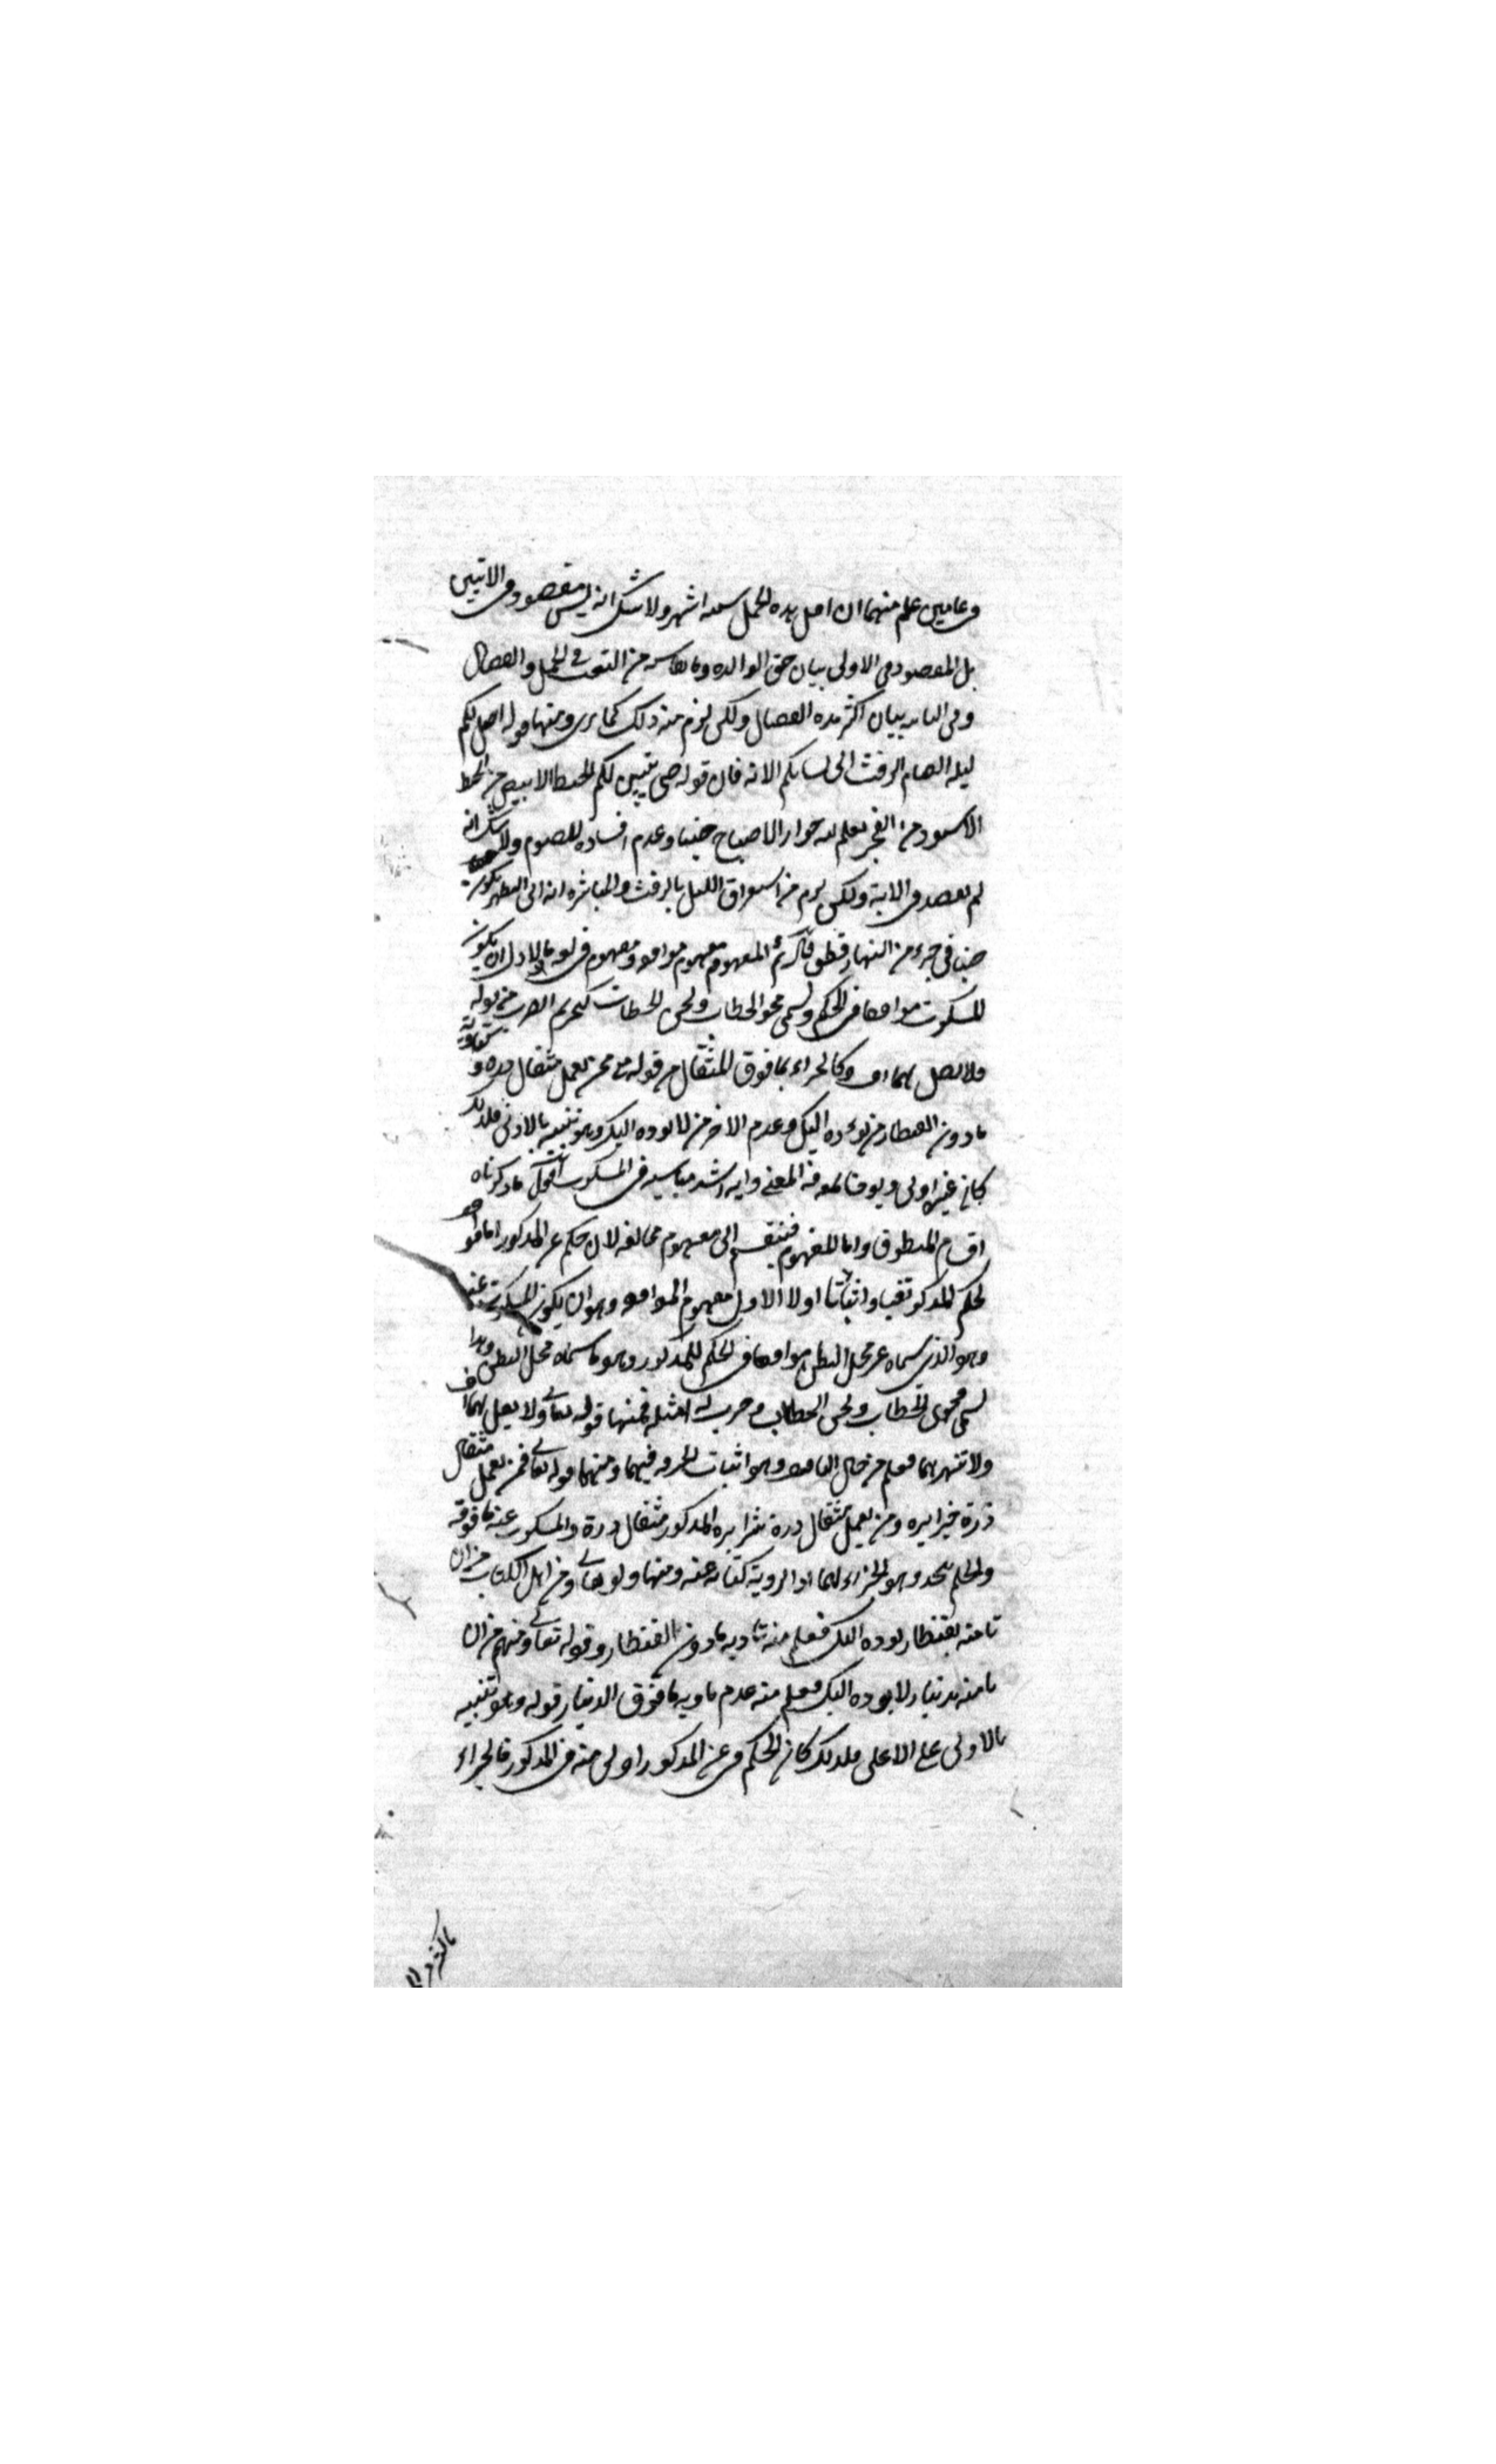 فى عامين علم منهما ان اقل مده الحمل سته اشهر ولا شك انه ليس مقصود فى الايتين
بل المقصود فى الاولى بيان حق الوالده وما تقاسيه من التعب فى الحمل والفصال
وفى الثانيه بيان اكثر مده الفصال ولكن لزم منه ذلك كما ترى ومنها قوله احل لكم
ليله الصيام الرفث الى نسائكم الايه فان قوله حتى يتبين لكم الخيط الابيض من الخيط
الاسود من الفجر يعلم منه جواز الاصباح جنبا وعدم افساده للصوم ولا شك انه
لم يقصد فى الاية ولكن لزم من استغراق الليل بالرفث والمباشره انه يكون
جنبا فى جزء من النهار قطعا المفهوم مفهوم موافقه ومفهوم مخالفه فالاول ان يكون
المسكوت موافقا فى الحكم ويسمى فحوى الخطاب ولحن الخطاب كتحريم الضرب من قوله تعالى
فلا تقل لهما اف وكالجزاء بما فوق المثقال من قوله تعالى فمن يعمل مثقال ذره و
ما دون القنطار من يؤده اليك وعدم الاخر من لا يؤده اليك وهو تنبيه بالادنى فلذلك
كان فى غيره اولى ويعرف بمعرفه المعنى وانه اشد مناسبه فى المسكوت اقول ما ذكرناه
اقسام المنطوق واما المفهوم فينقسم الى مفهوم مخالفه لان حكم غير المذكور اما موافق
لحكم المذكور نفيا واثباتا اولا الاول مفهوم الموافقه وهو ان يكون المسكوت عنه
وهو الذى سماه غير محل النطق موافقا فى الحكم للمذكور وهو ما سماه محل النطق وهذا
يسمى فحوى الخطاب ولحن الخطاب وضرب له امثله فمنها قوله تعالى ولا تقل لهما اف
ولا تنهرهما فعلم من حال التافيف وهو اثبات الحرمه فيهما ومنها قوله تعالى فمن يعمل مثقال
ذرة خيرا يره ومن يعمل مثقال ذرة شرا يره المذكور مثقال ذرة والمسكوت عنه ما فوقه
والحكم متحد وهو الجزاء لهما اذ الروية كناية عنه ومنها قوله تعالى ومن اهل الكتاب من ان
تامنه بقنطار يوده اليك فعلم منه تاديه ما دون القنطار وقوله تعالى ومنهم من ان
تامنه بدينار لا يوده اليك فعلم منه عدم تاديه ما فوق الدينار قوله وهو تنبيه
بالادنى على الاعلى فلذلك كان الحكم فى غير المذكور اولى منه فى المذكور فالجزاء